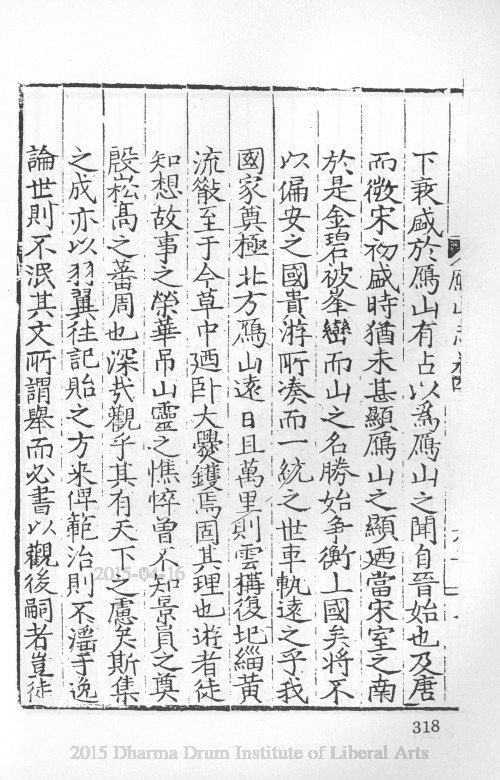 下衰盛於鴈山有占以為鴈山之聞自晉始也及唐
而徵宋初盛時猶未甚顯鴈山之顯廼當宋室之南
於是金碧被峯巒而山之名勝始爭衡上國矣將不
以偏安之國貴游所湊而一統之世車軌遠之乎我
國家奠極北方鴈山遠日且萬里則雲構復圯緇黃
流散至于今草中廼卧大爨鑊焉固其理也遊者徒
知想故事之榮華吊山靈之憔悴曾不知景員之奠
殷崧高之蕃周也深哉觀乎其有天下之慮矣斯集
之成亦以羽翼徃記貽之方來俾範治則不滛于逸
論世則不泯其文所謂舉而必書以觀後嗣者豈徒
318
2015-04-16
2015 Dharma Drum Institute of Liberal Arts